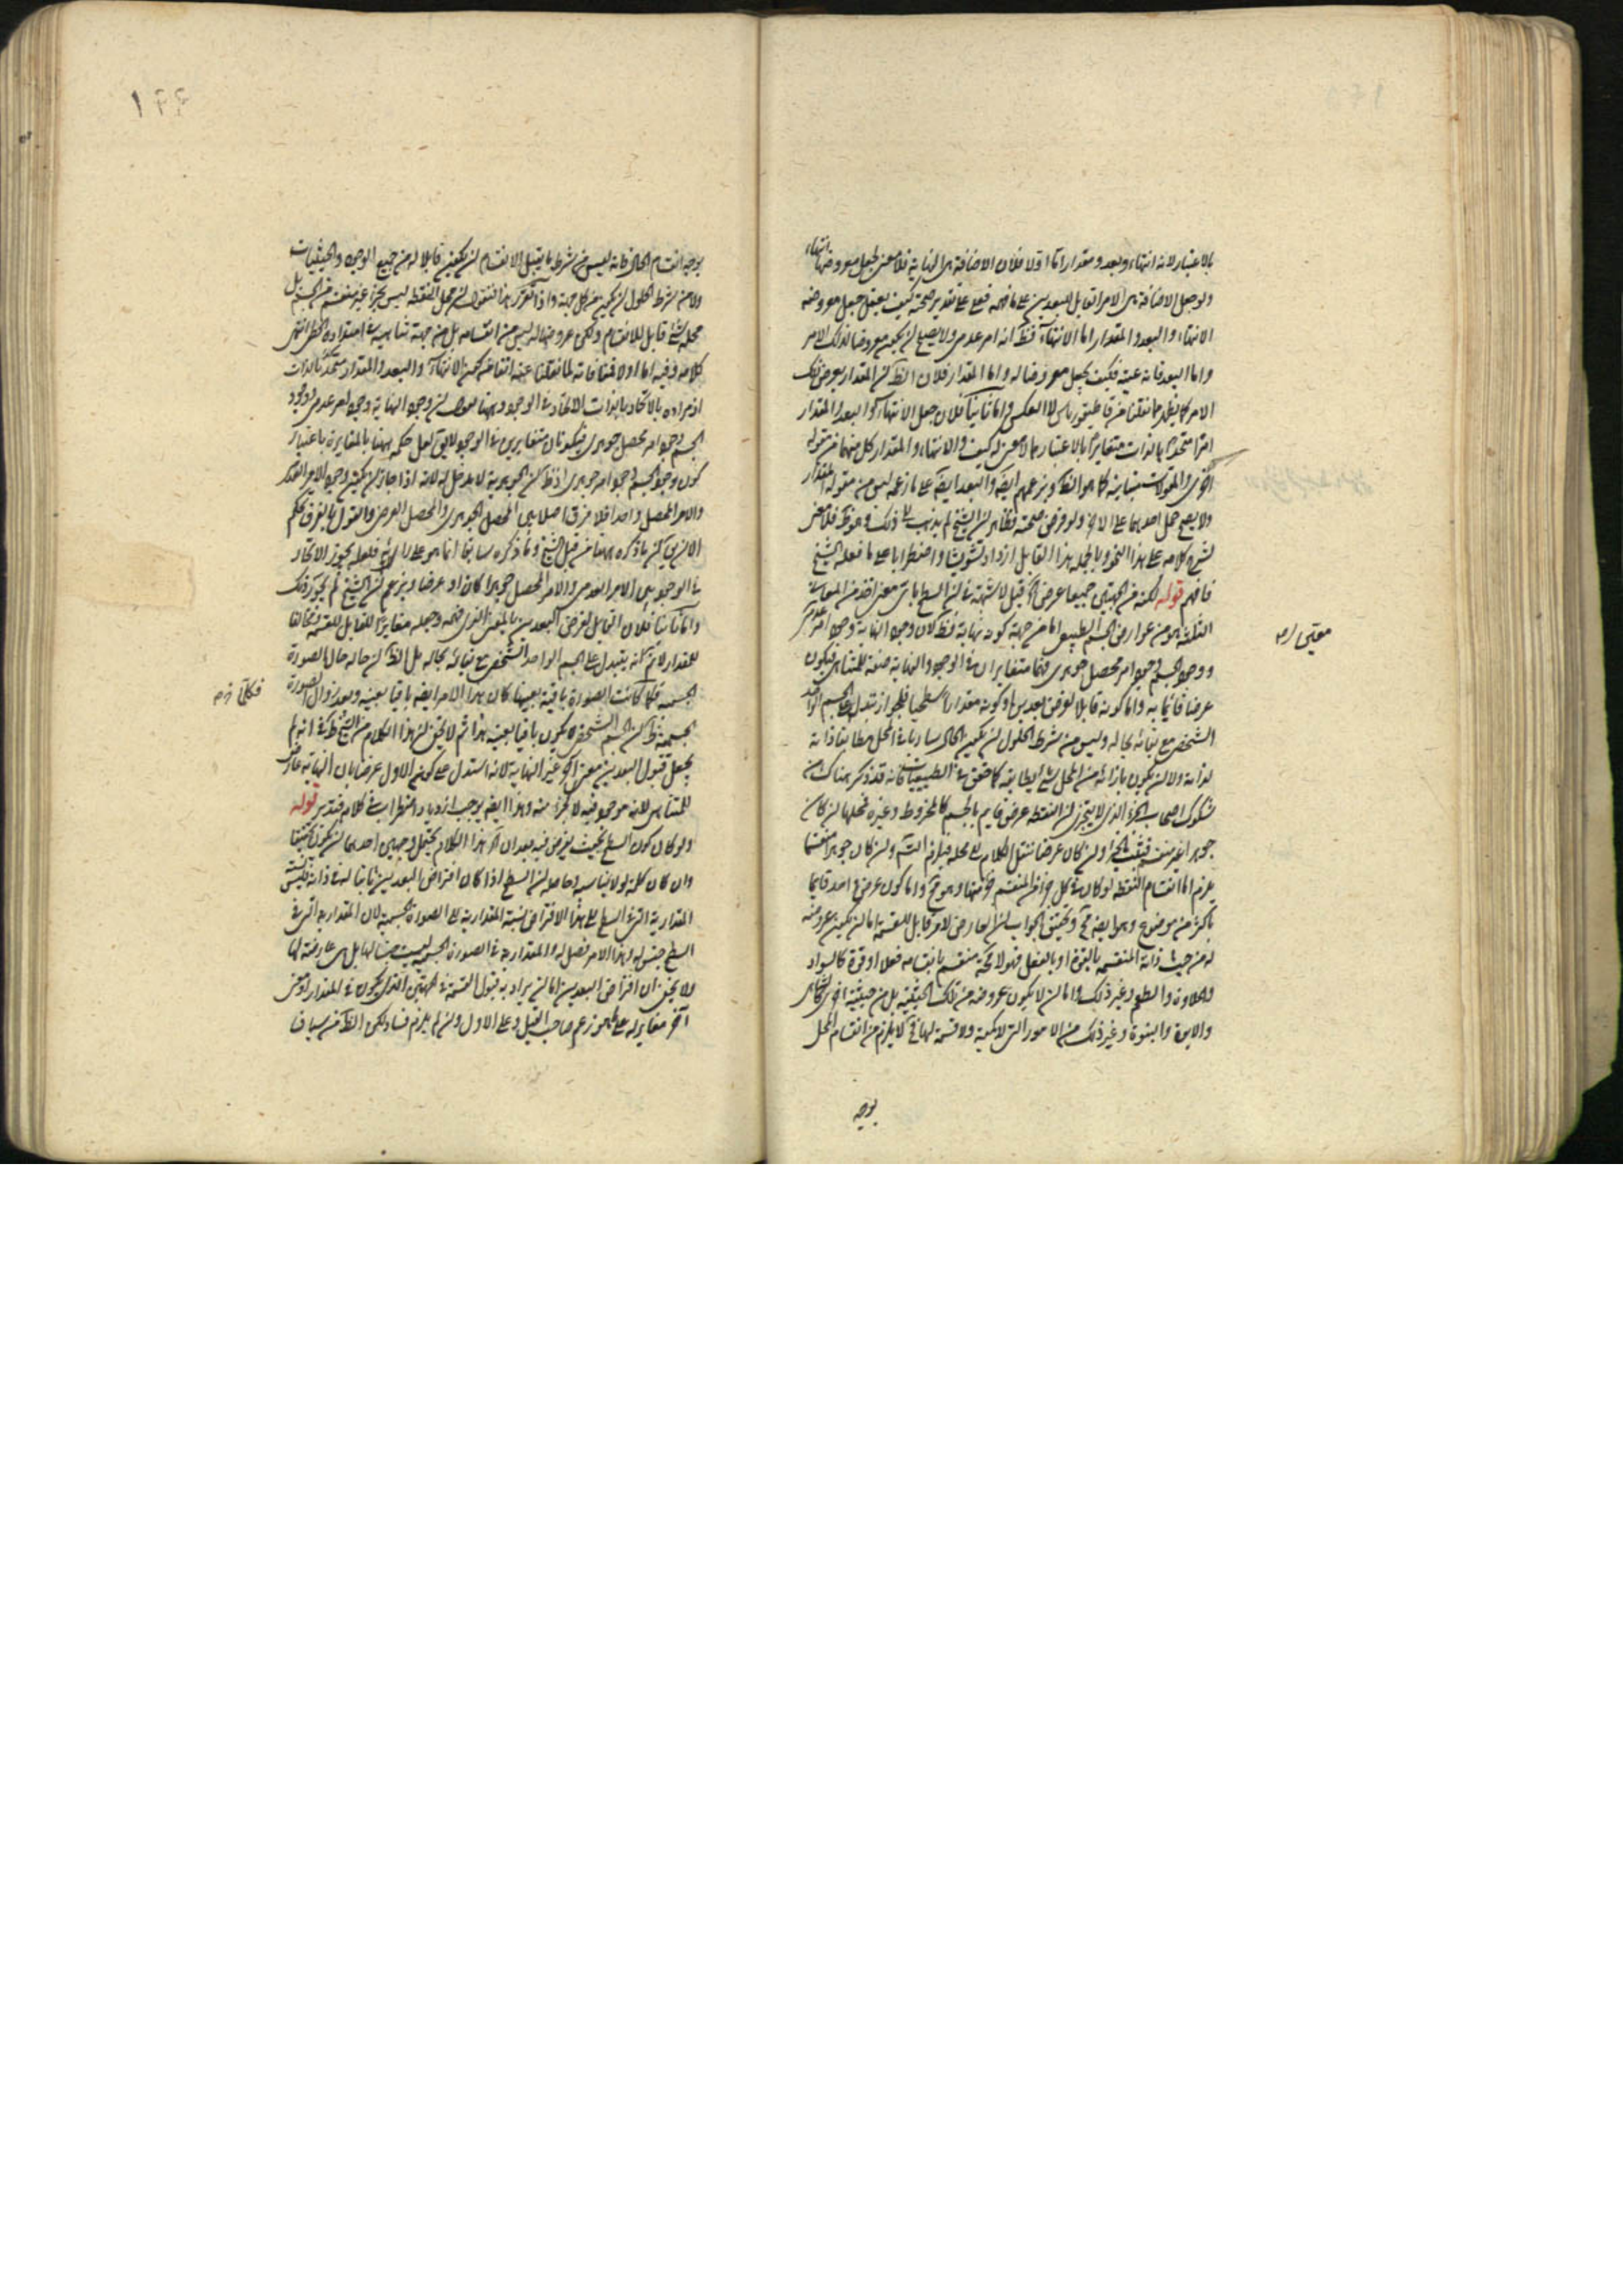 بالاعتبار لانه انتهاء وبعد ومقدار اما اولا فلان الاضافة الى النهاية فلا معنى لجعل معروضها انتهاء
ولو جعل الاضافة الى الامر القابل للبعدين على ما فهمه فعلى تقدير صحته كيف يعقل جعل معروضه
الانتهاء والبعد والمقدار اما الانتهاء فظ انه امر عدمى ولا يصلح لن يكون معروضا لذلك الامر
واما البعد فانه عينه فكيف يجعل معروضا له واما المقدار فلان الظ لن المقدار يعرض ذلك
الامر كما يظهر مما نقلنا من قاطيغورياس لا العكس واما ثانيا فلان جعل الانتهاء والبعد والمقدار
امرا متحدا بالذات متغايرا بالاعتبار مما لا معنى له كيف والانتهاء والمقدار كل منهما من مقولة
اخرى والمقولات متباينة كما هو الظ وبزعمهم ايضا والبعد ايضا على ما زعمه ليس من مقولة المقدار
ولا يصح حمل احدهما على الاخر ولو فرض صحته فظاهر لن الشيخ لم يذهب الى ذلك فلا معنى
لشرح كلامه على هذا النحو وبالجملة هذا القايل ازداد تشويشا واضطرابا على ما فعله الشيخ
فافهم قوله لكنه من الجهتين جميعا عرض الخ قيل لا شبهة فى لن السطح باى معنى اخذ من المعانى
الثلثة هو من عوارض الجسم الطبيعى اما من جهة كونه نهاية فظ لان وجود النهاية وجود امر عدمى
ووجود الجسم وجود امر محصل جوهرى فهما متغايران فى الوجود والنهاية صفة للمتناهى فيكون
عرضا قائما به واما كونه قابلا لفرض بعدين او كونه مقدارا سطحيا فلجواز تبدل على الجسم الواحد
الشخصى مع بقائه بحاله وليس من شرط الحلول لن يكون الحال ساريا فى المحل مطابقا ذاته
لذاته ولا لن يكون بازائه من المحل شئ يطابقه كما حقق فى الطبيعيات فانه قد ذكر هناك من
شكوك اصحاب الجزء الذى لا يتجزى لن النقطة عرض قايم بالجسم كالمخروط وغيره فمحلها لن كان
جوهرا غير منقسم فيثبت الجزء ولن كان عرضا ننقل الكلام الى محله فيلزم التس ولن كان جوهرا منقسما
يلزم اما انقسام النقطة لو كان فى كل جزء من المنقسم جزء منها وهو مح واما كون عرض واحد قايما
باكثر من موضوع وهو ايضا مح وتحقيق الجواب لن العارض لامر قابل للقسمة اما لن يكون عروضه
له من حيث ذاته المنقسمة بالقوة او بالفعل فهو لا محة منقسم بانقسامه فعلا او قوة كالسواد
والحلاوة والطعم وغير ذلك واما لن لا يكون عروضه من تلك الحيثية بل من حيثية اخرى كالتناهى
والابوة والبنوة وغير ذلك من الامور التى لا كمية ولا قسمة لها فح لا يلزم من انقسام المحل
بوجه
معنى لن
۱۴۴
بوجه انقسام الحال فانه ليس من شرط ما يقبل الانقسام لن يكون قابلا له من جميع الوجوه والحيثيات
ولا من شرط الحلول لن يكون من كل جهة واذا تقرر هذا فنقول لن محل النقطة ليس بجزء غير منقسم من الجسم بل
محله شئ قابل للانقسام ولكن عروضها له ليس من انقسامه بل من جهة تناهيه فى امتداده الخطى انتهى
كلامه وفيه اما اولا فمنافاته لما نقلنا عنه انفا من كون الانتهاء والبعد والمقدار متحدة بالذات
اذ مراده بالاتحاد بالذات الاتحاد فى الوجود وههنا يقول لن وجود النهاية وجود امر عدمى ووجود
الجسم وجود امر محصل جوهرى فيكونان متغايرين فى الوجود لا يق لعل حكمه ههنا بالمغايرة باعتبار
كون وجود الجسم وجود امر جوهرى اذ نظ لن الجوهرية لا مدخل له لانه اذا جاز لن يكون وجود الامر العدمى
والامر المحصل واحدا فلا فرق اصلا بين المحصل الجوهرى والمحصل العرضى والقول بالفرق تحكم
الا لن يق لن ما ذكره ههنا من قبل الشيخ وما ذكره سابقا انما هو على رايه فلعله يجوز الاتحاد
فى الوجود بين الامر العدمى والامر المحصل جوهرا كان او عرضا ويزعم لن الشيخ لم يجوز ذلك
واما ثانيا فلان القابل لفرض البعدين بالمعنى الذى فهمه وجعله مغايرا للقابل للقسمة ومخالفا
للمقدار لانم لنه يتبدل على الجسم الواحد الشخصى مع بقائه بحاله بل الظ لن حاله حال الصورة
الجسمية فكما كانت الصورة باقية بعينها كان هذا الامر ايضا باقيا بعينه وبعد زوال الصورة
الجسمية ظ لن الجسم الشخصى لا يكون باقيا بعينه هذا ثم لا يخفى لن هذا الكلام من الشيخ ظ فى انه لم
يجعل قبول البعدين معنى اخر غير النهاية لانه استدل على كونه الاول عرضا بان النهاية عارض
للمتناهى لانه موجود فيه لا كجزء منه وهذا ايضا يوجب ازدياد اضطراب فى كلامه فتدبر قوله
ولو كان كون السطح بحيث يفرض فيه بعدان الخ هذا الكلام يحتمل وجهين احدهما لن يكون تحقيقا
وان كان كلمة لو لا يناسبه وحاصله لن السطح اذا كان افتراض البعدين ثابتا له فى ذاته فليست
المقدارية التى فى السطح الى هذا الافتراض نسبة المقدارية الى الصورة الجسمية لان المقدارية التى فى
السطح جنس له وهذا الامر فصل له والمقدارية فى الصورة الجسمية ليست جنسا لها بل هى عارضة لها
ولا يخفى ان افتراض البعدين اما لن يراد به قبول القسمة فى جهتين الذى يكون فى المقدار او معنى
اخر مغاير له على ما هو زعم صاحب القيل وعلى الاول ولن لم يلزم فساد لكن الظ من سياق